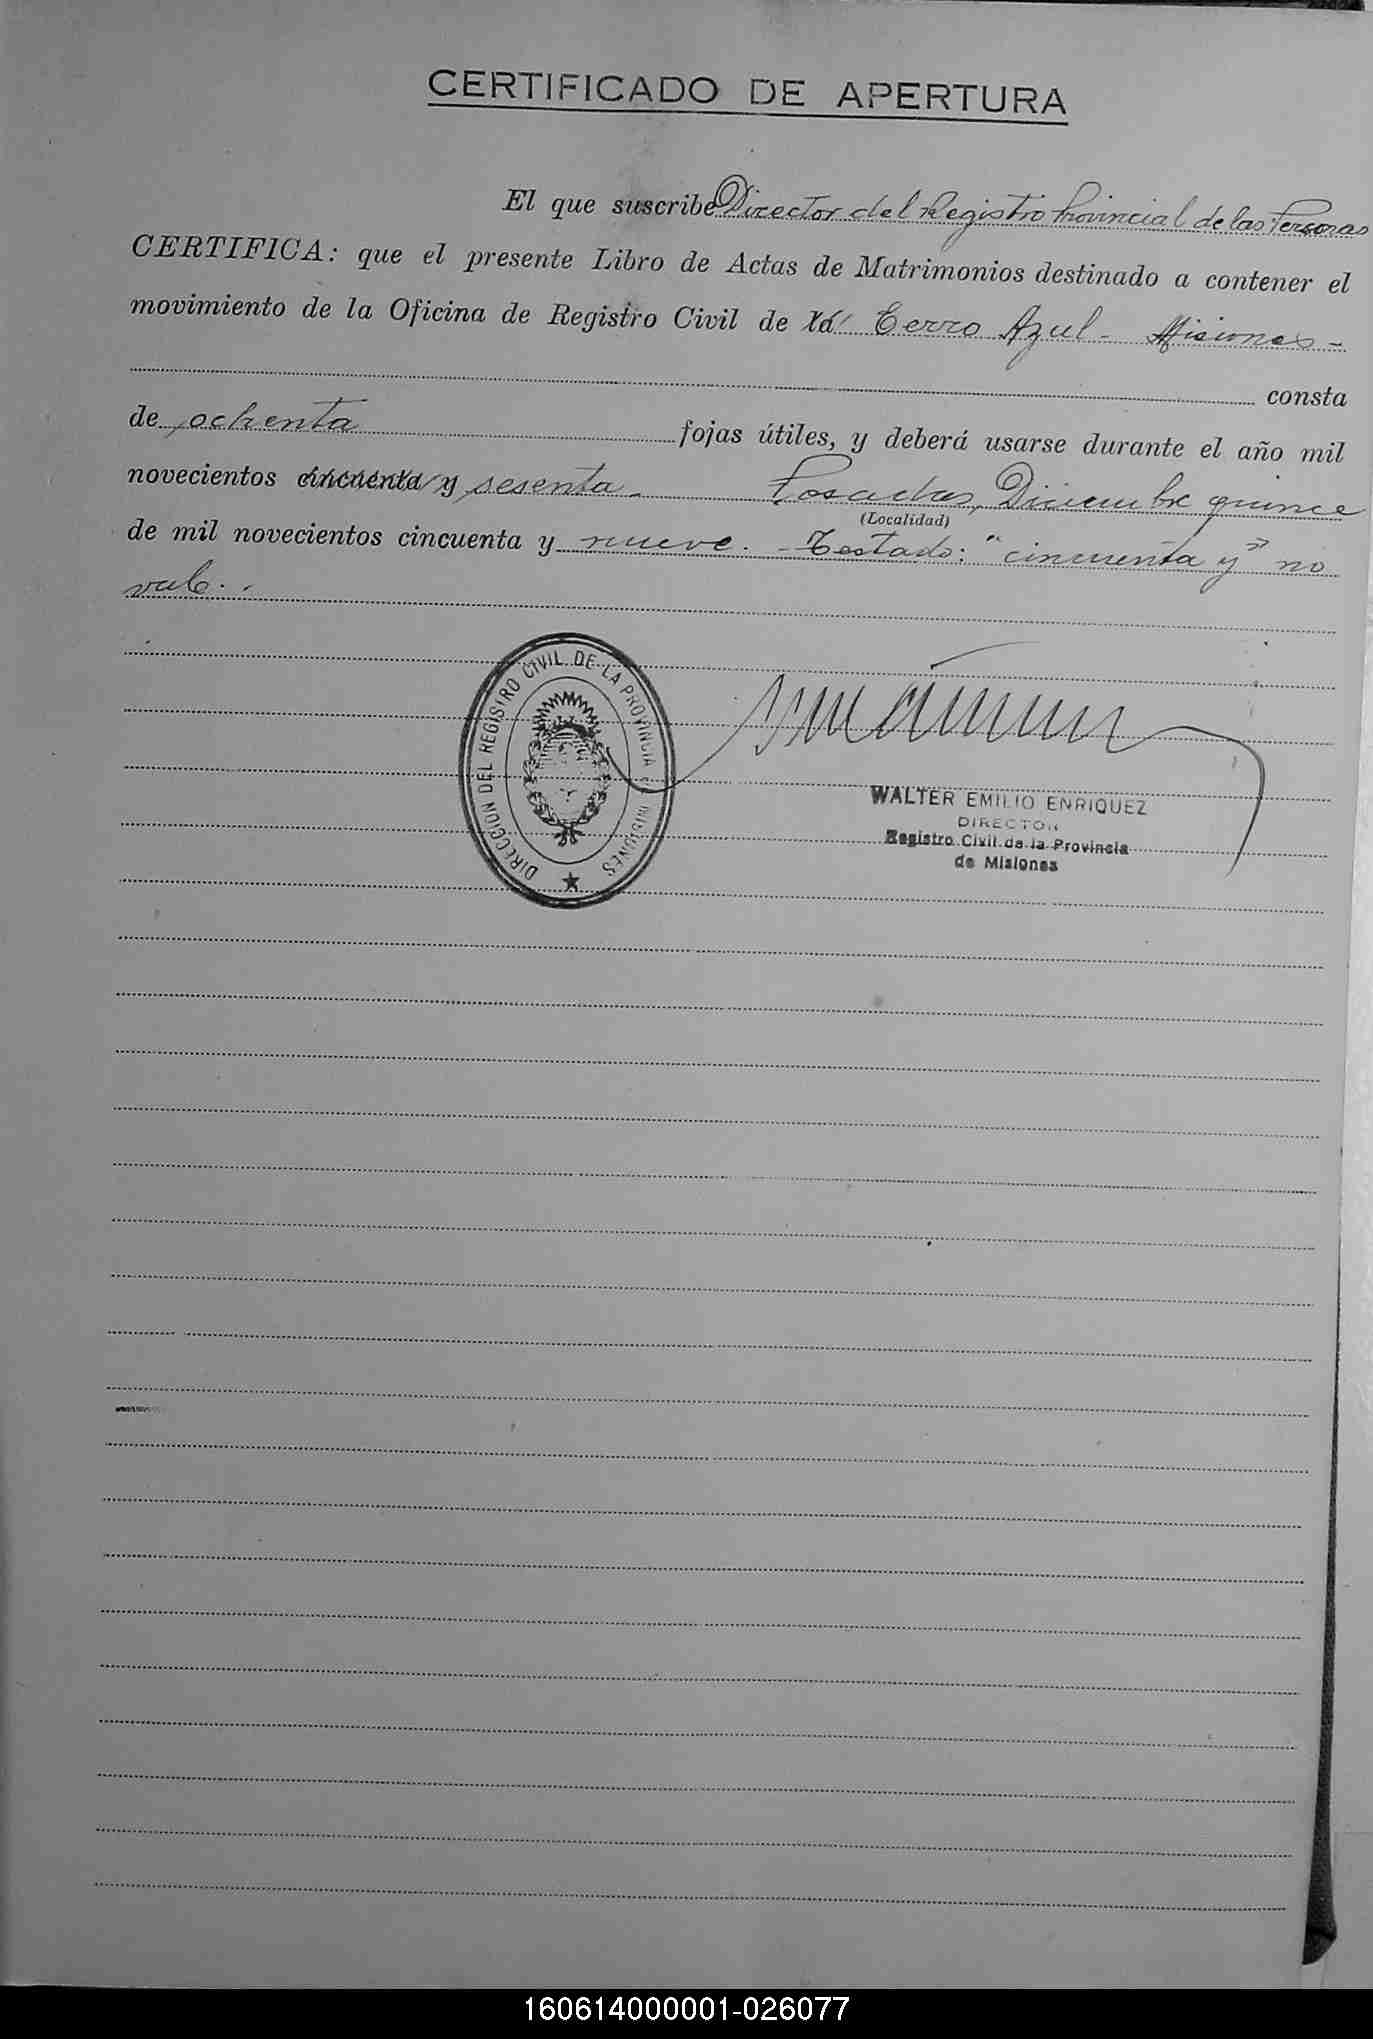 CERTIFICADO DE APERTURA
El que suscribe Director del Registro Provincial de las Personas
CERTIFICA: que el presente Libro de Actas de Matrimonios destinado a contener el
movimiento de la Oficina de Registro Civil de la Cerro Azul - Misiones -
consta
de ochenta fojas útiles, y deberá usarse durante el año mil
novecientos cincuenta y sesenta. Posadas, Diciembre quince
(Localidad)
de mil novecientos cincuenta y nueve. - Testado: "cincuenta y" no
vale. -
DIRECCION DEL REGISTRO CIVIL DE LA PROVINCIA MISIONES
WALTER EMILIO ENRIQUEZ
DIRECTOR
Registro Civil de la Provincia
de Misiones
160614000001-026077